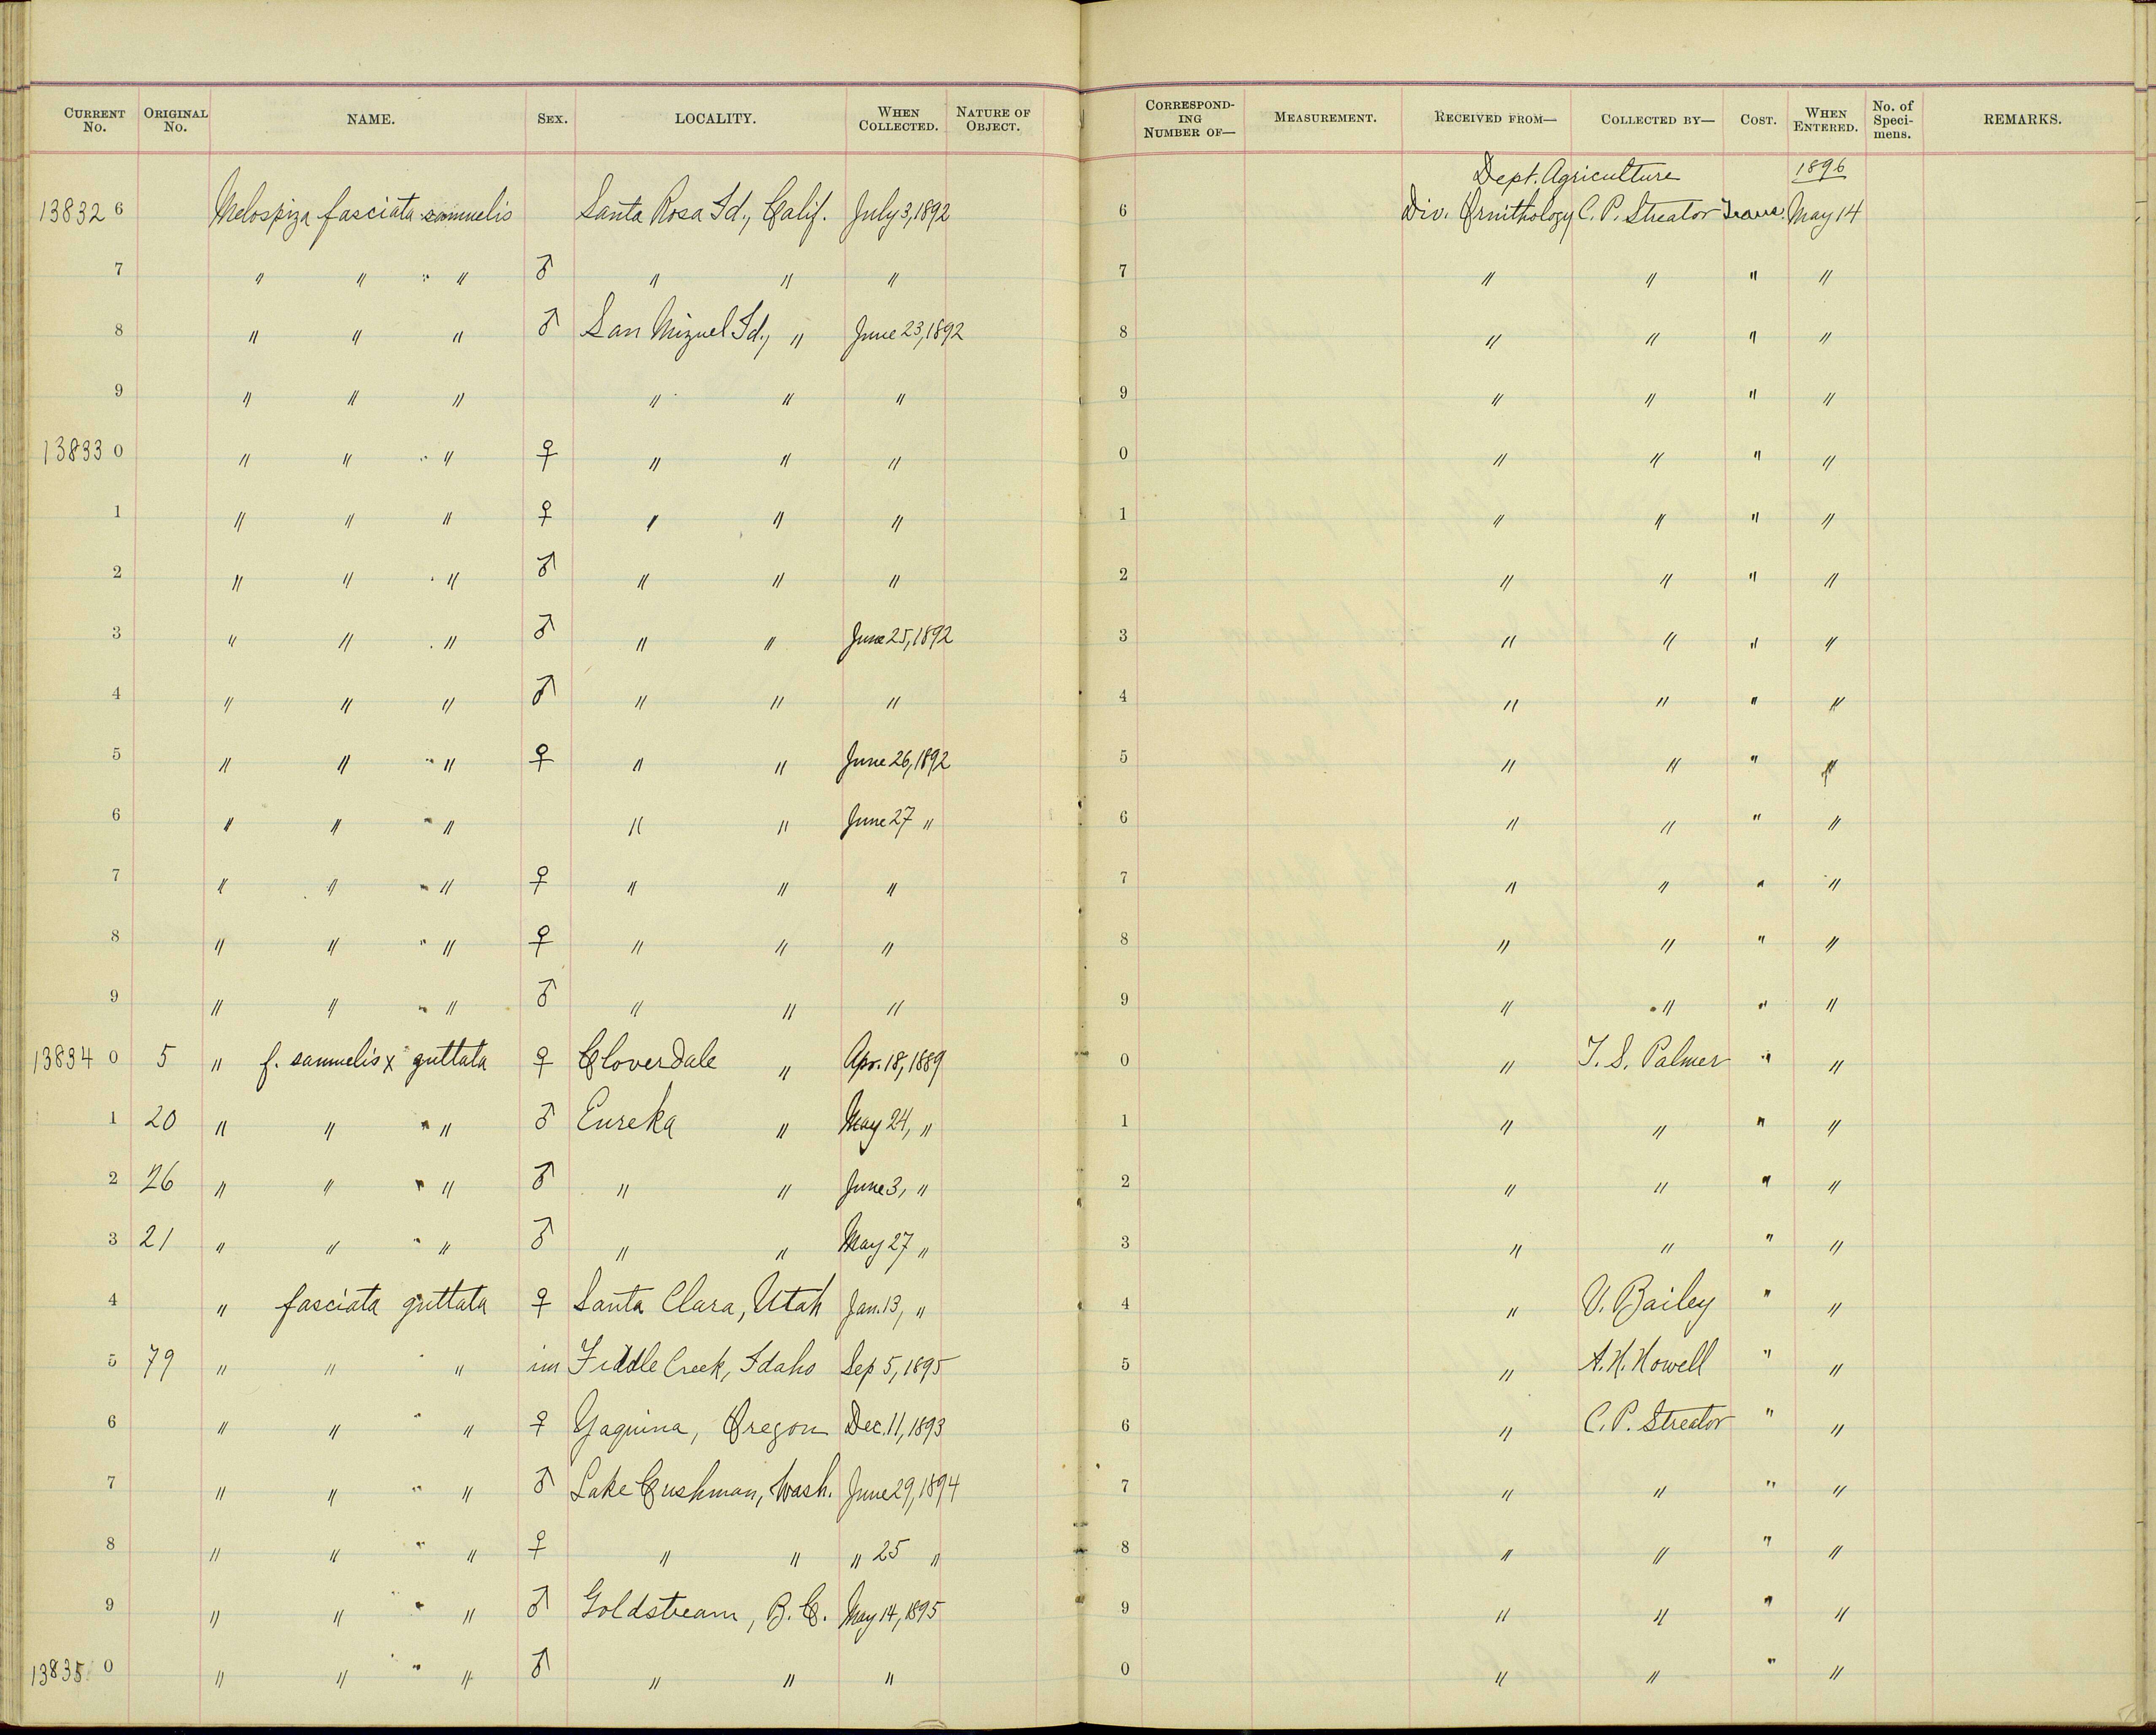 CURRENT No. ORIGINAL No. NAME. SEX. LOCALITY. WHEN COLLECTED. NATURE OF OBJECT. CORRESPONDING NUMBER OF— MEASUREMENT. RECEIVED FROM— COLLECTED BY— COST. WHEN ENTERED. No. of Specimens. REMARKS.
Dept. Agriculture 1896
13832 6 Melospiza fasciata samuelis Santa Rosa Id., Calif. July 3, 1892 6 Div. Ornithology C. P. Streator Trans. May 14
7 " " " " ♂ " " " 7 " " " "
8 " " " ♂ San Miguel Id., " June 23, 1892 8 " " " "
9 " " " " " " 9 " " " "
13833 0 " " " ♀ " " " 0 " " " "
1 " " " ♀ " " " 1 " " " "
2 " " " ♂ " " " 2 " " " "
3 " " " ♂ " " June 25, 1892 3 " " " "
4 " " " ♂ " " " 4 " " " "
5 " " " ♀ " " June 26, 1892 5 " " " "
6 " " " " " June 27 " 6 " " " "
7 " " " ♀ " " " 7 " " " "
8 " " " ♀ " " " 8 " " " "
9 " " " ♂ " " " 9 " " " "
13834 0 5 " f. samuelis x guttata ♀ Cloverdale " Apr. 18, 1889 0 " T. S. Palmer " "
1 20 " " " " ♂ Eureka " May 24, " 1 " " " "
2 26 " " " " ♂ " " June 3, " 2 " " " "
3 21 " " " " ♂ " " May 27 " 3 " " " "
4 " fasciata guttata ♀ Santa Clara, Utah Jan. 13, " 4 " V. Bailey " "
5 79 " " " im Fiddle Creek, Idaho Sep 5, 1895 5 " A. H. Howell " "
6 " " " ♀ Yaquina, Oregon Dec. 11, 1893 6 " C. P. Streator " "
7 " " " " ♂ Lake Cushman, Wash. June 29, 1894 7 " " " "
8 " " " " ♀ " " " 25 " 8 " " " "
9 " " " " ♂ Goldstream, B. C. May 14, 1895 9 " " " "
13835 0 " " " " ♂ " " " 0 " " " "